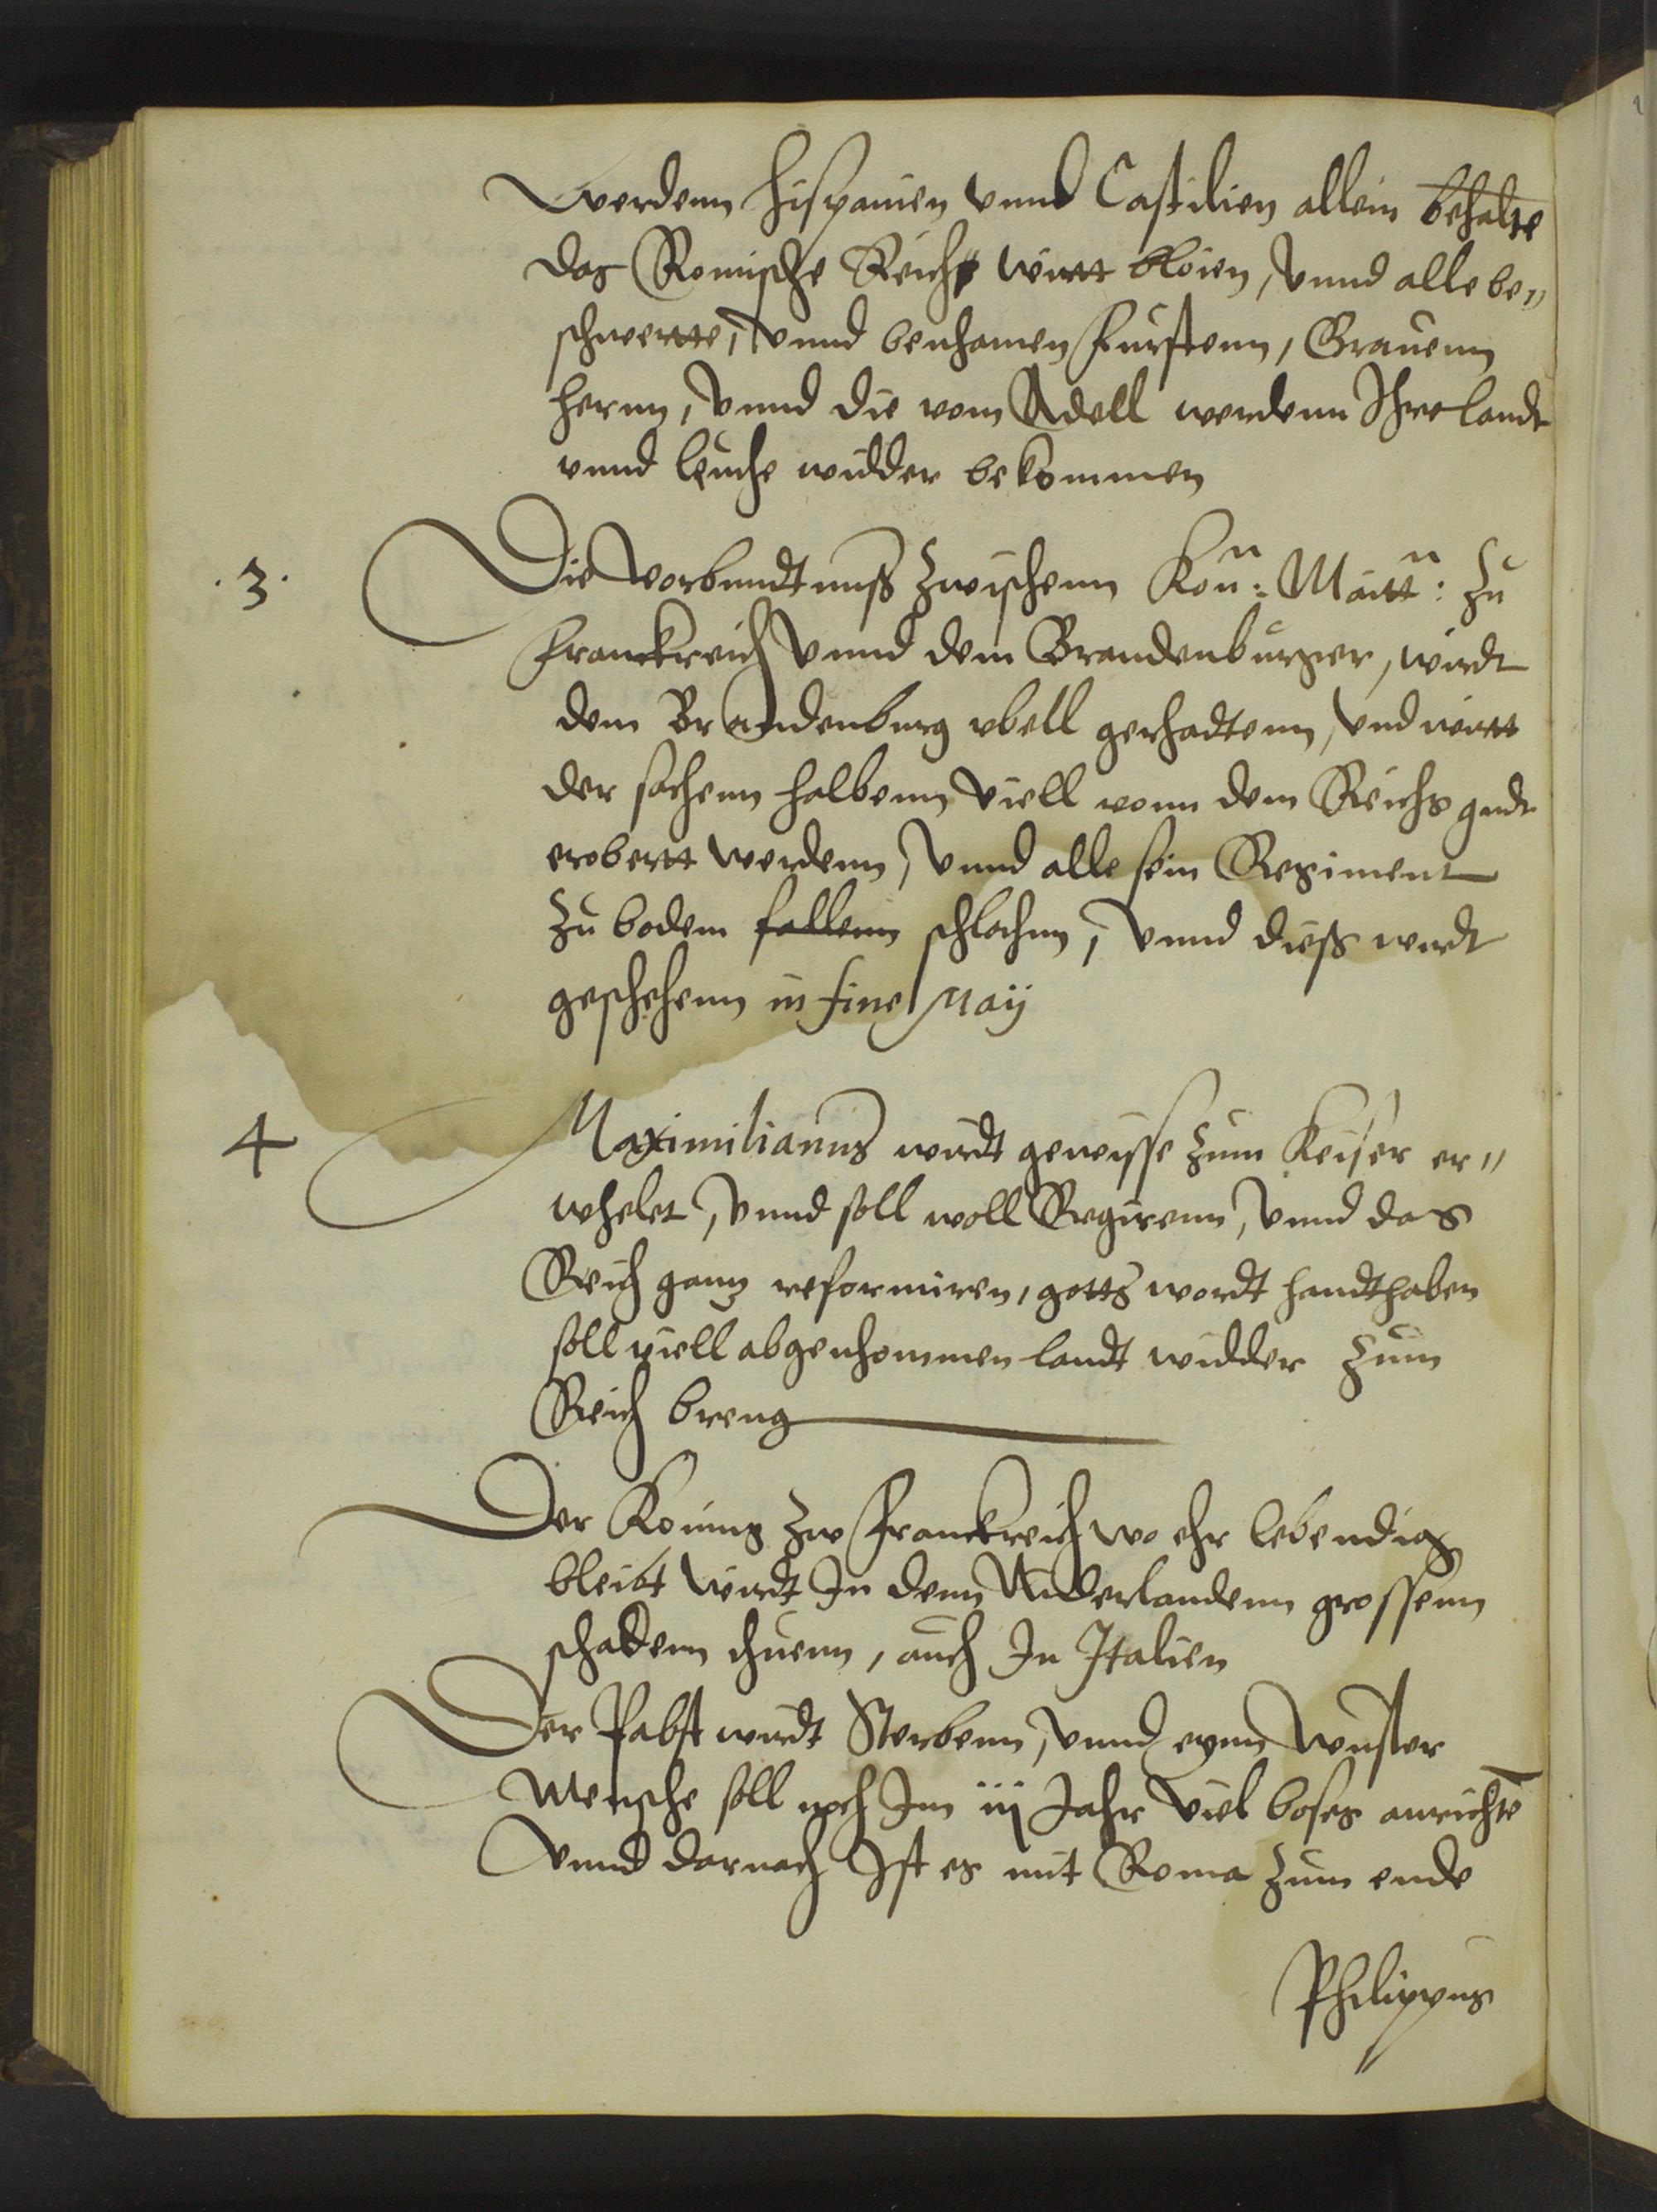 werdenn Hispanien vnnd Castilien allein behalte
das Romische Reich wirtt bloien, vnnd alle be„
schwertte, vnnd benhamen Furstenn, Grauenn
Hernn, vnnd die vom Adell werdenn Ihre landt
vnnd leuthe widder bekommen
.3. Die verbundtnuß zwischenn Kon: Maitt: zu
Franckreich vnnd dem Brandenburger, wirdt
dem Brandenburg vbell gerhadtenn, vnd wirtt
der sachenn halbenn viell vonn dem Reichs gudt
erobertt werdenn, vnnd alle sein Regiment
zu bodem fallenn schlachnn, vnnd dieß wirdt
geschehenn in fine Maij
4 Maximilianus wirdt gewisse zum Keiser er„
whelet, vnnd soll woll Regirenn, vnnd das
Reich gantz reformiren, gotts wordt handthaben
soll viell abgenhommen landt widder zum
Reich breng
Der Koning zw Franckreich wo ehr lebendig
bleibt wirdt In denn Niderlandenn grossenn
schadenn thuenn, auch In Italien
Der Pabst wirdt Sterbenn, vnnd eynn wuster
Mensche soll noch Im iij Jahr viel boses anrichte
Vnnd darnach Ist es mit Roma zum ende
Philippus